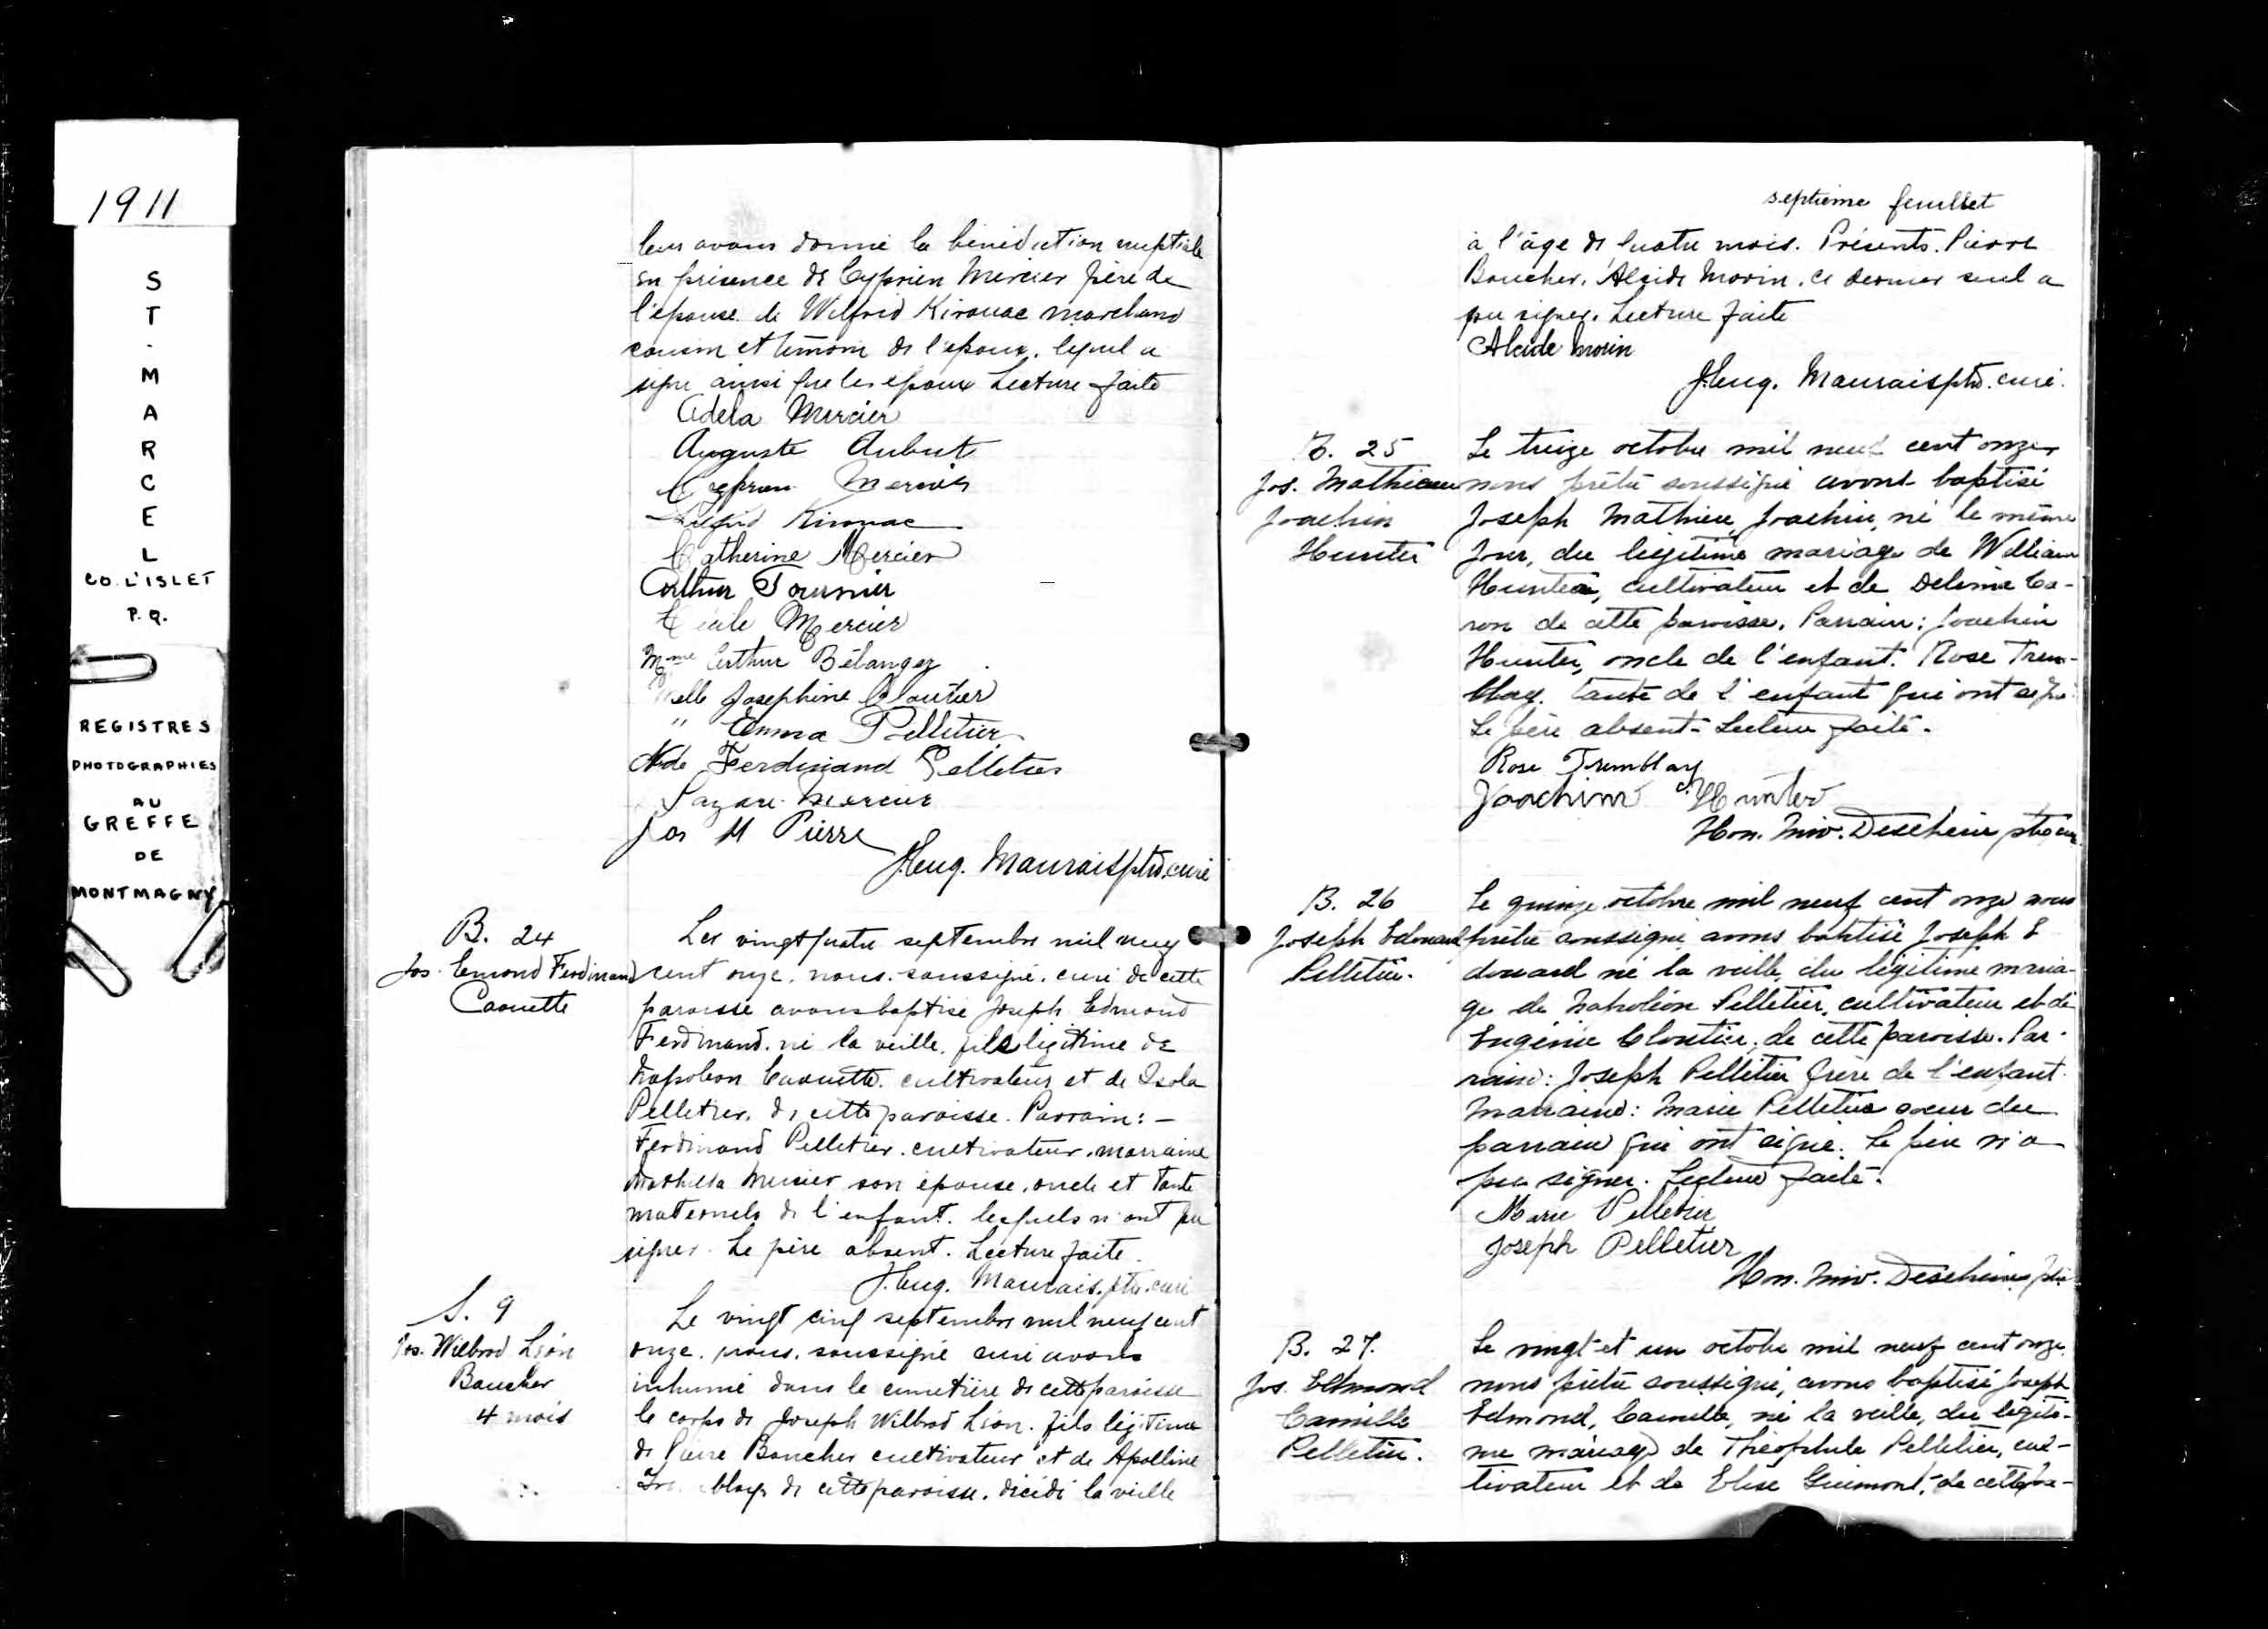 1911
S
T
.
M
A
R
C
E
L
CO. L'ISLET
P.Q.
REGISTRES
PHOTOGRAPHIES
AU
GREFFE
DE
MONTMAGNY
leur avons donné la bénédiction nuptiale
en présence de Cyprien Mercier père de
l'épouse de Wilfrid Kirouac marchand
cousin et témoin de l'époux, lequel a
signé ainsi que les époux Lecture faite
Adela Mercier
Auguste Aubut
Cyprien Mercier
Wilfrid Kirouac
Catherine Mercier
Arthur Fournier
Cécile Mercier
Mme Arthur Bélanger
Melle Josephine Cloutier
" Emma Pelletier
Ferdinand Pelletier
Lazare Mercier
Jos M Pierre
J. Eug. Maurais ptre. curé
B. 24
Jos. Emond Ferdinand
Caouette
Les vingt quatre septembre mil neuf
cent onze, nous, soussigné, curé de cette
paroisse avons baptisé Joseph Edmond
Ferdinand, né la veille, fils légitime de
Napoléon Caouette, cultivateur et de Isola
Pelletier, de cette paroisse. Parrain: -
Ferdinand Pelletier, cultivateur, marraine
Mathilda Mercier son épouse, oncle et tante
maternels de l'enfant, lesquels n'ont pu
signer. Le père absent. Lecture faite.
J. Eug. Maurais, ptre. curé
S. 9
Jos. Wilbrod Léon
Boucher
4 mois
Le vingt cinq septembre mil neuf cent
onze, nous, soussigné curé avons
inhumé dans le cimetière de cette paroisse
le corps de Joseph Wilbrod Léon, fils légitime
de Pierre Boucher cultivateur et de Apolline
Tremblay de cette paroisse, décédé la veille
septième feuillet
à l'âge de quatre mois. Présents. Pierre
Boucher, Alcide Morin, ce dernier seul a
pu signer. Lecture faite
Alcide Morin
J. Eug. Maurais ptre. curé.
B. 25
Jos. Mathieu
Joachim
Hunter
Le treize octobre mil neuf cent onze
nous prêtre soussigné avons baptisé
Joseph Mathieu, Joachim, né le même
jour, du légitime mariage de William
Hunter, cultivateur et de Delima Ca-
ron de cette paroisse. Parrain: Joachim
Hunter, oncle de l'enfant. Rose Trem-
blay, tante de l'enfant qui ont signé.
Le père absent - Lecture faite.
Rose Tremblay
Joachim Hunter
Hon. Niv. Deschênes ptre
B. 26
Joseph Edouard
Pelletier.
Le quinze octobre mil neuf cent onze nous
prêtre soussigné avons baptisé Joseph E
douard né la veille, du légitime maria-
ge de Napoléon Pelletier, cultivateur et de
Eugénie Cloutier, de cette paroisse. Par-
rain: Joseph Pelletier frère de l'enfant.
Marraine: Marie Pelletier soeur du
parrain qui ont signé. Le père n'a
pu signer. Lecture faite.
Marie Pelletier
Joseph Pelletier
Hon. Niv. Deschênes ptre
B. 27.
Jos. Edmond
Camille
Pelletier.
Le vingt-et un octobre mil neuf cent onze
nous prêtre soussigné, avons baptisé Joseph
Edmond, Camille, né la veille, du légiti-
me mariage de Théophile Pelletier, cul-
tivateur et de Elise Guimont, de cette pa-